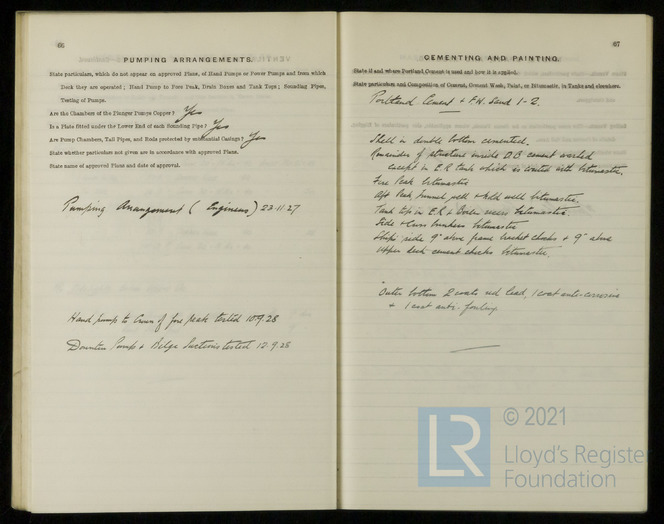 66
PUMPING ARRANGEMENTS.
State particulars, which do not appear on approved Plans, of Hand Pumps or Power Pumps and from which
Deck they are operated; Hand Pump to Fore Peak, Drain Boxes and Tank Tops; Sounding Pipes,
Testing of Pumps.
Are the Chambers of the Plunger Pumps Copper? Yes
Is a Plate fitted under the Lower End of each Sounding Pipe? Yes
Are Pump Chambers, Tail Pipes, and Rods protected by substantial Casings? Yes
State whether particulars not given are in accordance with approved Plans.
State name of approved Plans and date of approval.
Pumping Arrangement (Engineers) 22.11.27
Hand pump to Crown of fore peak tested 10.9.28
Downton Pump & Bilge Suctions tested 12.9.28
67
CEMENTING AND PAINTING.
State if and where Portland Cement is used and how it is applied.
State particulars and Composition of Cement, Cement Wash, Paint, or Bitumastic, in Tanks and elsewhere.
Portland Cement & F.W. Sand 1-2.
Shell in double bottom cemented.
Remainder of structure inside D.B. cement washed
except in E.R. tank which is coated with bitumastic.
Fore Peak bitumastic
Aft Peak tunnel well & well bitumastic.
Tank top in E.R & Boiler recess bitumastic.
Side & Cross bunkers bitumastic
Ships side 9" above frame bracket chocks & 9" above
upper deck cement chocks bitumastic.
Outer bottom 2 coats red lead, 1 coat anti-corrosive
& 1 coat anti-fouling.
LR
© 2021
Lloyd's Register
Foundation